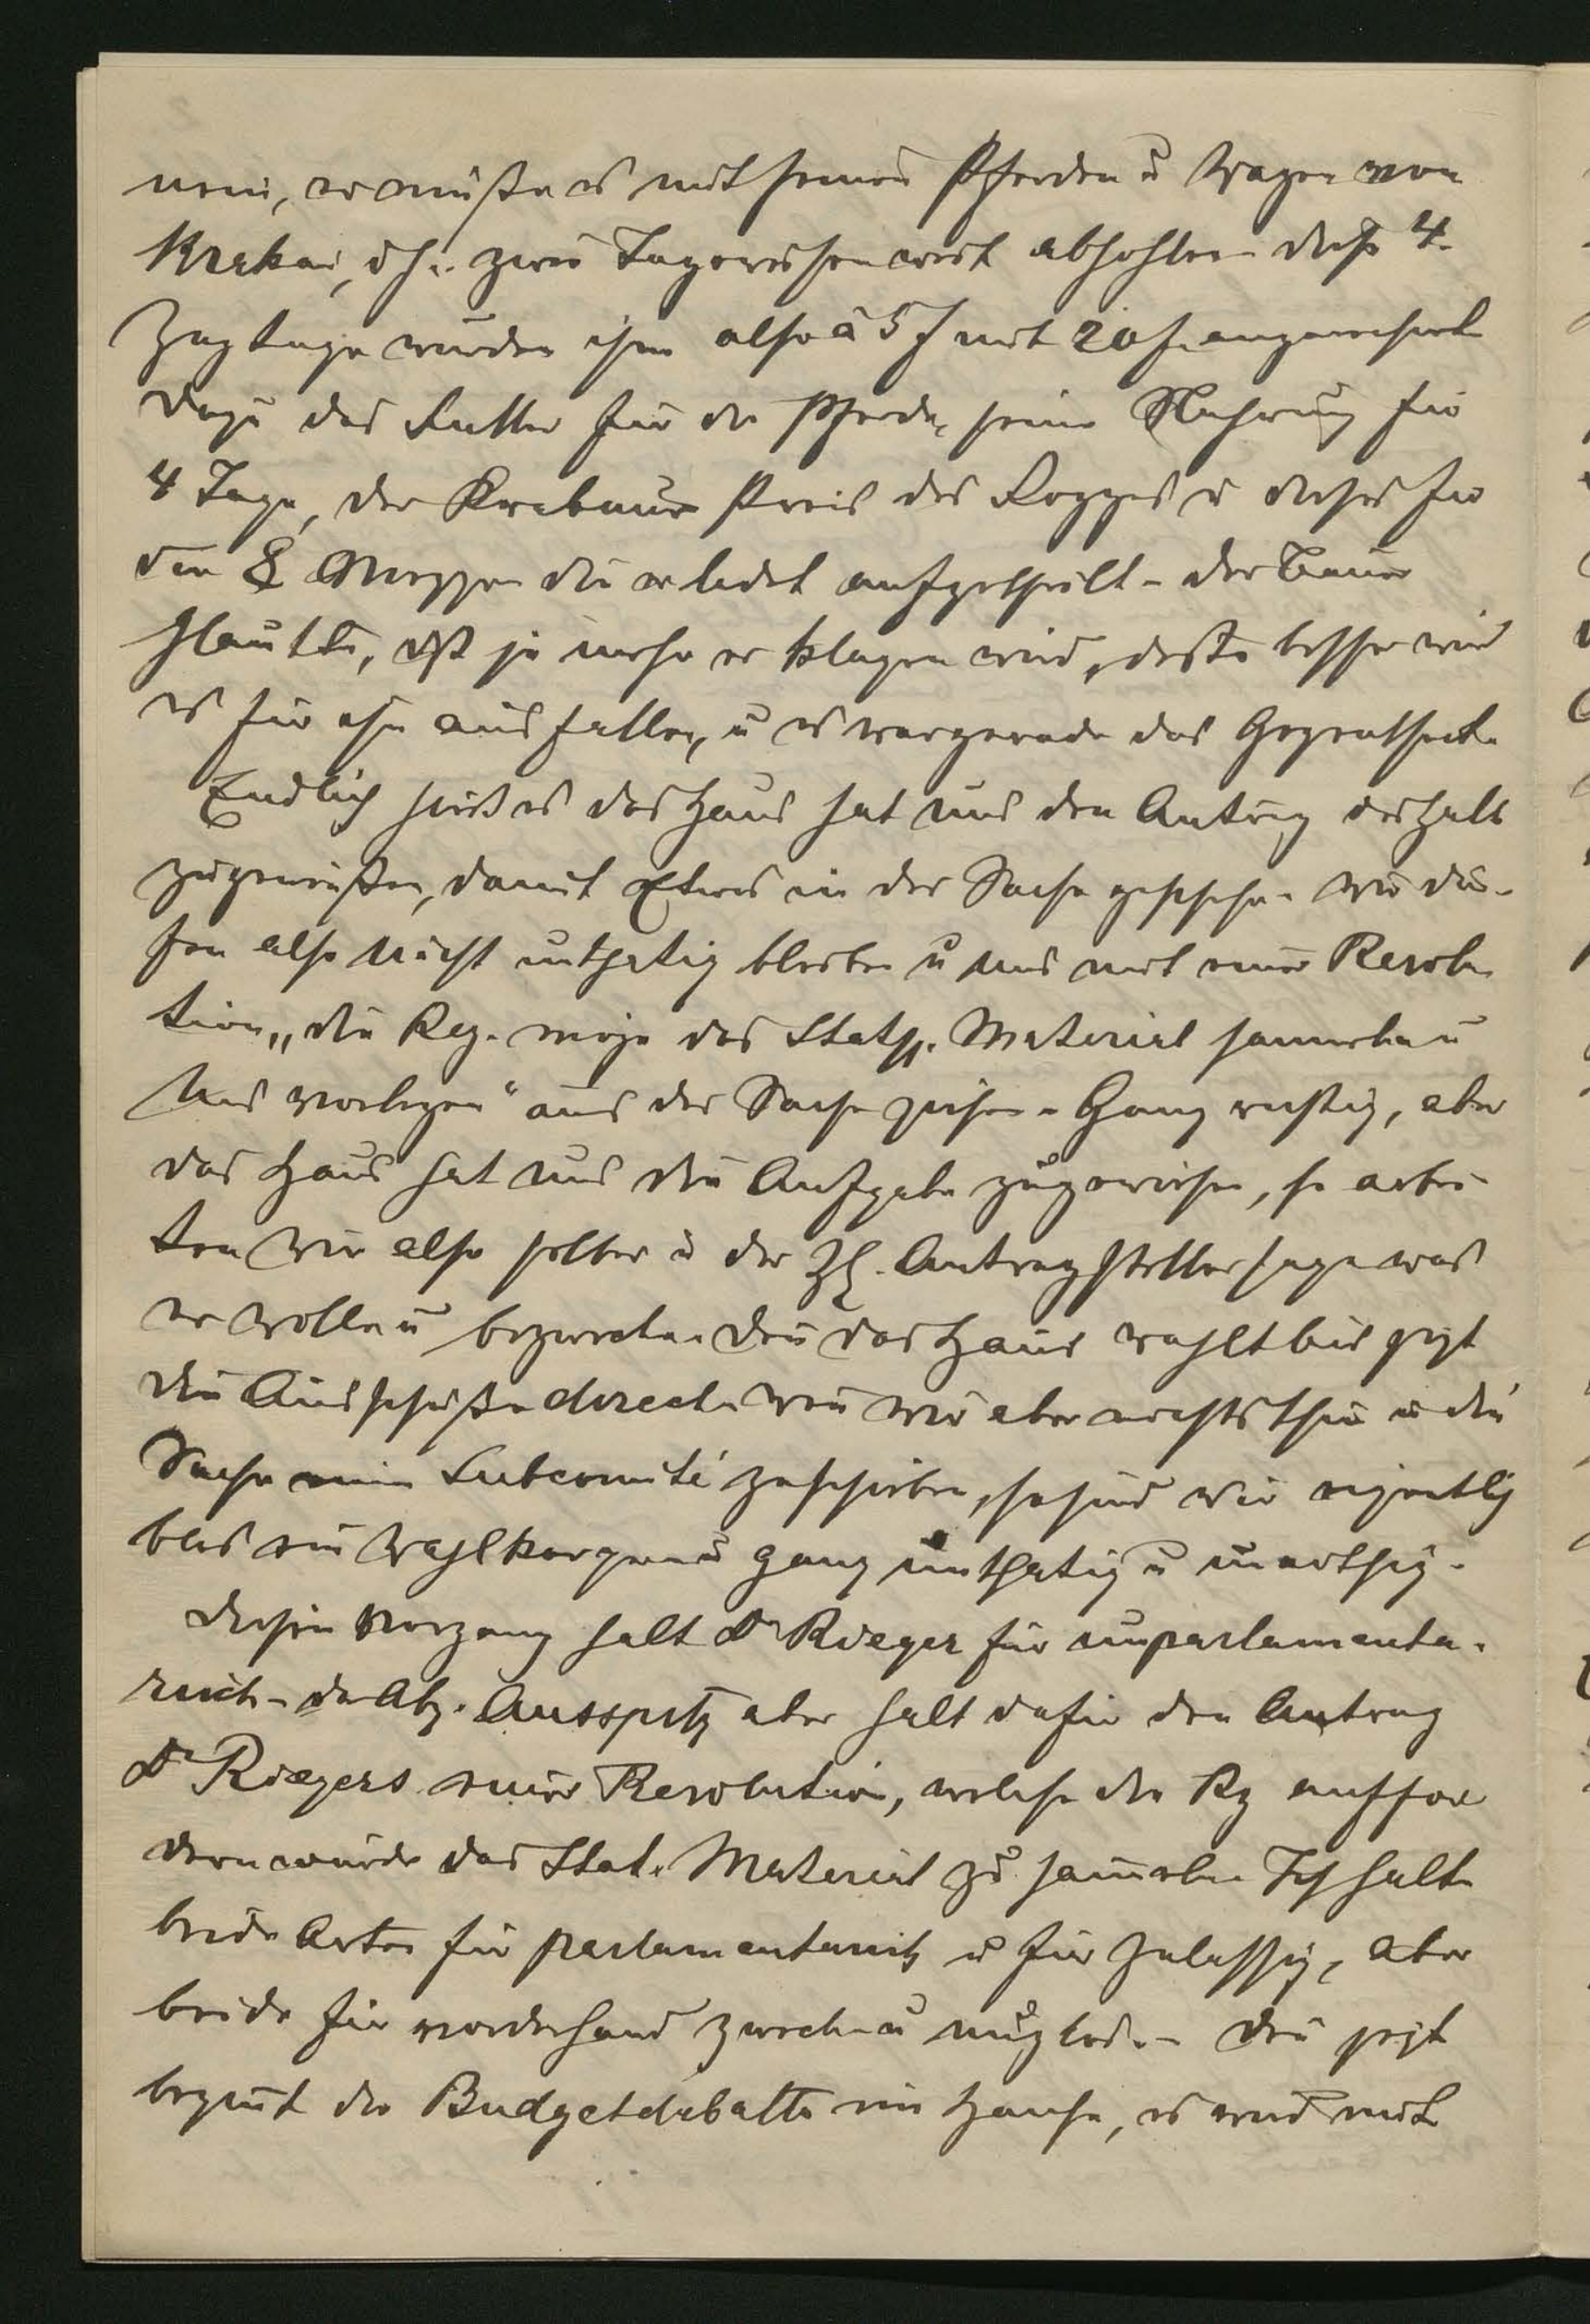 nein, er mußte es mit seinen Pferden u Wagen von
Krakau, d h. zwei Tagereisen weit abhohlen diese 4.
Zugtage wurden ihm also à 5 f mit 20 f. angerechnet
dazu das Futter für die Pferde, seine Nahrung für
4 Tage, der Krakauer Preis des Roggens u dieses für
den 8 Morgen die er bedet aufgetheilt - der Bauer
glaubte, daß je mehr er klagen wird, desto besser wird
es für ihn ausfallen, u es war gerade das Gegentheil.
Endlich hieß es das Haus hat uns den Antrag deshalb
zugewiesen, damit Etwas in der Sache geschehe. Wir dür-
fen also nicht unthatig bleiben u uns mit einer Resolu
tion „die Reg. möge das Statist. Material sammeln u
uns vorlegen" aus der Sache ziehen. Ganz richtig, aber
das Haus hat uns die Aufgabe zugewiesen, so arbei-
ten wir also selber u der H. Antragsteller sage was
er wolle u bezwecke. Den das Haus wahlt bis jezt
die Ausschüße direct. Wen wir aber nichts thun u die
Sache ein Subcomité zuschieben, so sind wir eigentlich
blos ein Wahlkorper u ganz unthatig u unnöthig.
Diesen Vorgang halt Dr Rieger für unparlamenta-
risch - der Abg. Ausspitz aber halt dafür den Antrag
Dr Riegers einer Resolution, welche die Rg auffor
dern wurde das Stat. Material zu sammeln. Ich halte
beide Arten für parlamentarisch u für zulassig, aber
beide für vorderhand zweck u nuzlos. - Den jezt
begint die Budgetdebatte im Hause, es wird mit